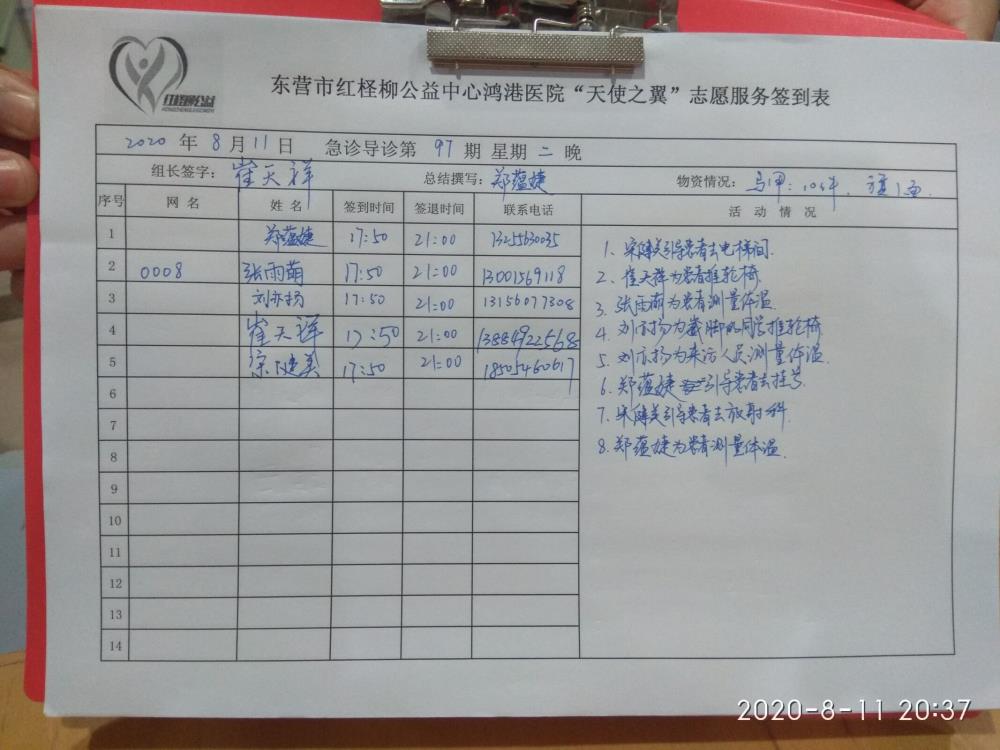 红柽柳公益
东营市红柽柳公益中心鸿港医院“天使之翼”志愿服务签到表
2020 年 8 月 11 日 急诊导诊第 97 期 星期 二 晚
组长签字: 崔天祥 总结撰写: 郑蕴婕 物资情况: 马甲: 10件,
序号 网名 姓名 签到时间 签退时间 联系电话 活动情况
1 郑蕴婕 17:50 21:00 13255630035
2 0008 张雨萌 17:50 21:00 13001569118
3 刘亦扬 17:50 21:00 13156077308
4 崔天祥 17:50 21:00 13884922568
5 宋健美 17:50 21:00 18505460617
6
7
8
9
10
11
12
13
14
1. 宋健美引导患者去电梯间.
2. 崔天祥为患者推轮椅.
3. 张雨萌为患者测量体温.
4. 刘亦扬为崴脚的同学推轮椅
5. 刘亦扬为来访人员测量体温.
6. 郑蕴婕引导患者去挂号.
7. 宋健美引导患者去放射科.
8. 郑蕴婕为患者测量体温.
2020-8-11 20:37